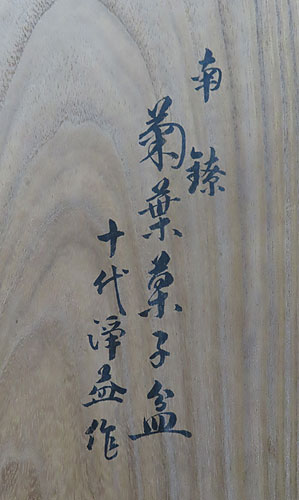 南鐐
菊葉菓子盆
十代浄益作